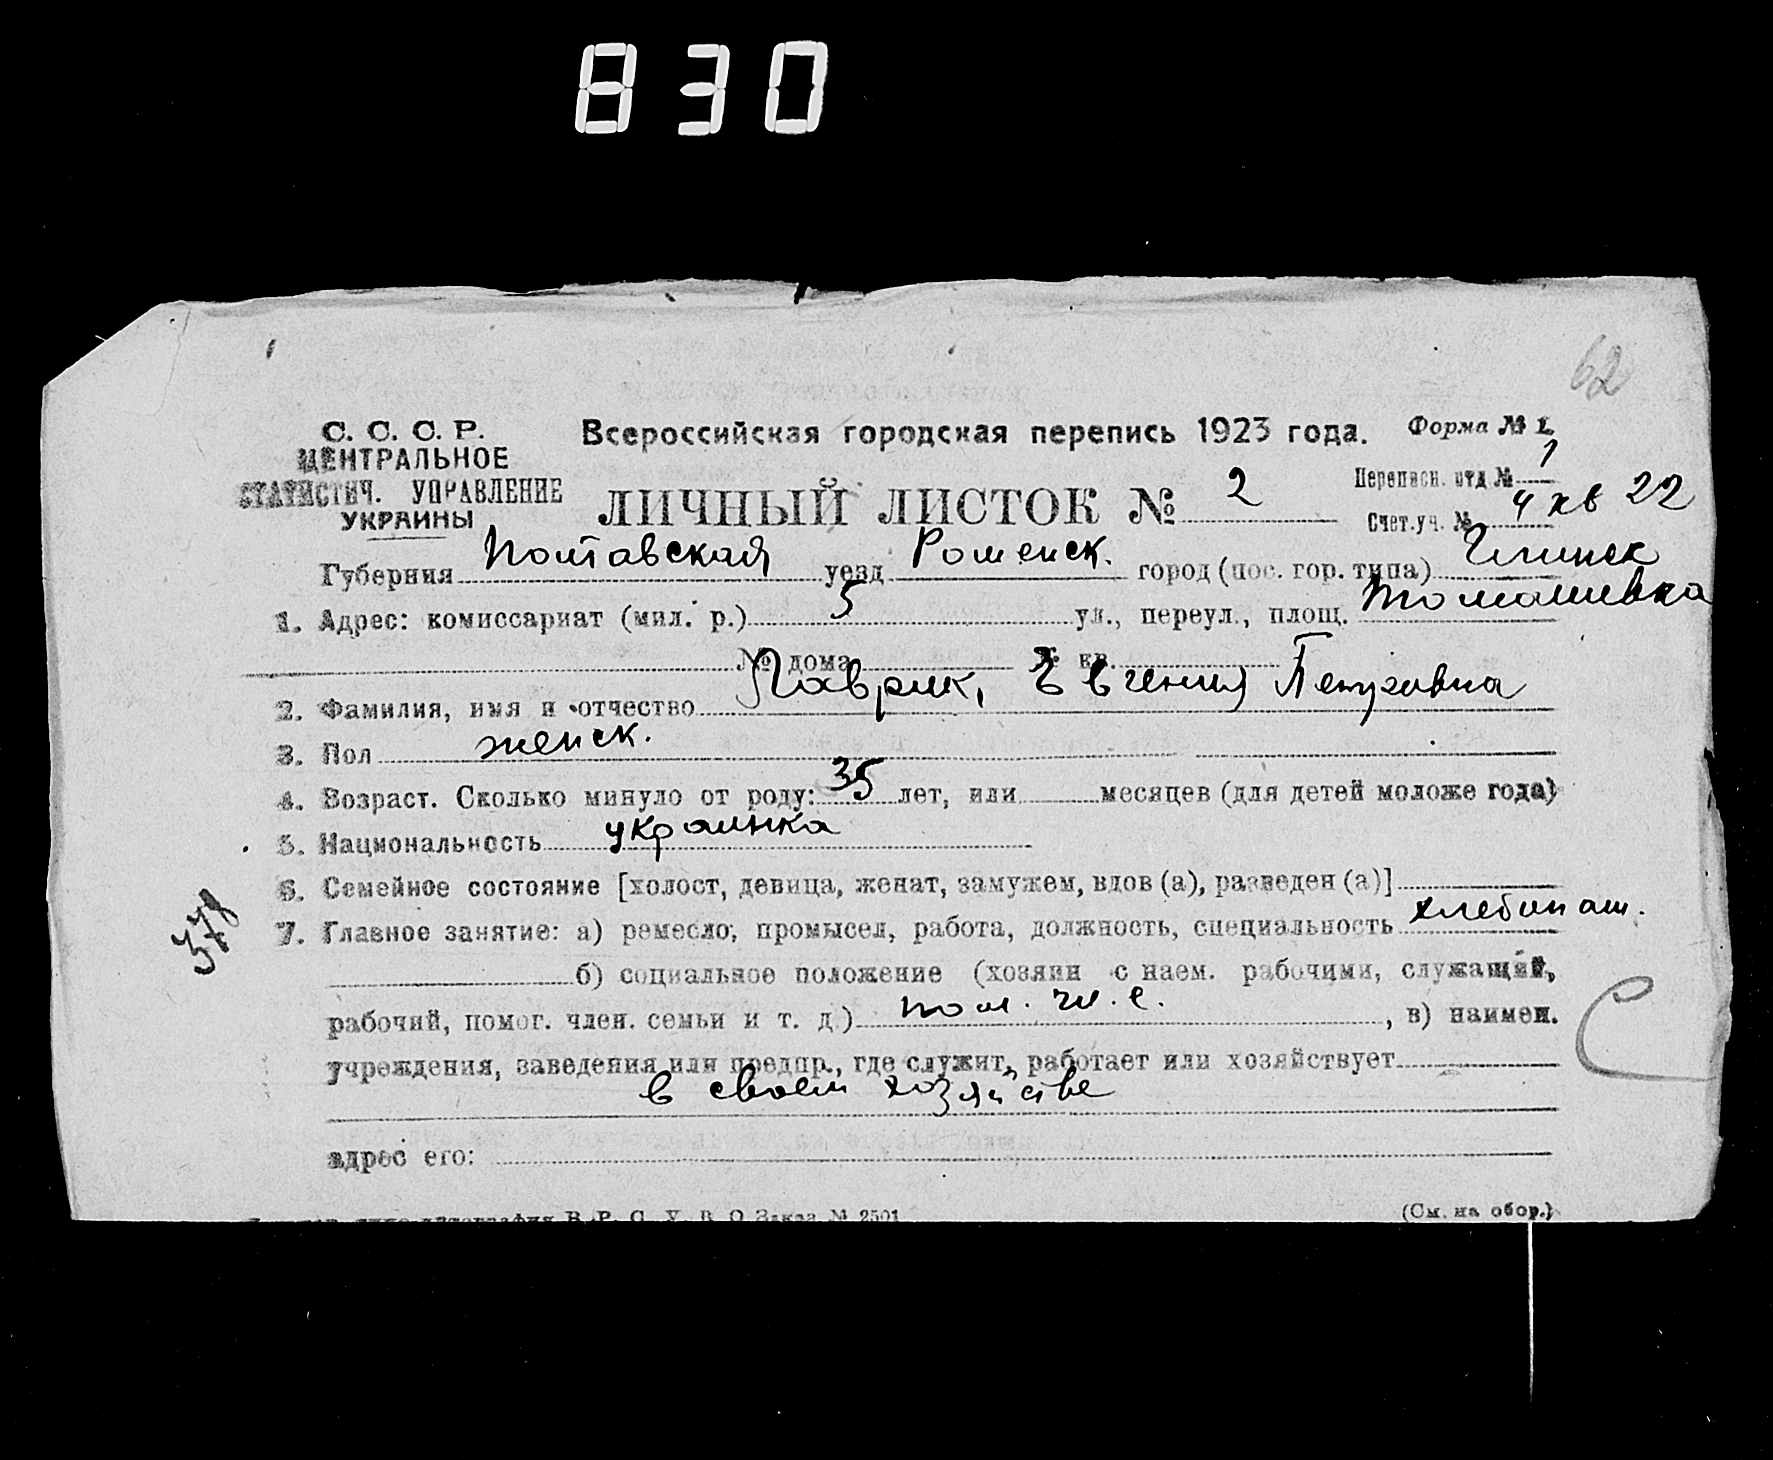 830
62
С. С. С. Р.
ЦЕНТРАЛЬНОЕ
СТАТИСТИЧ. УПРАВЛЕНИЕ
УКРАИНЫ
Всероссийская городская перепись 1923 года.
Форма № 1.
ЛИЧНЫЙ ЛИСТОК № 2
Переписн. отд № 1
Счет.уч. № 4 кв 22
Губерния Полтавская уезд Роменск. город (пос. гор. типа) Глинск
1. Адрес: комиссариат (мил. р.) 5 ул., переул., площ. Томашевка
№ дома № кв.
2. Фамилия, имя и отчество Лаврик, Евгения Петровна
3. Пол женск.
4. Возраст. Сколько минуло от роду: 35 лет, или месяцев (для детей моложе года)
5. Национальность украинка
6. Семейное состояние [холост, девица, женат, замужем, вдов (а), разведен (а)]
378
7. Главное занятие: а) ремесло, промысел, работа, должность, специальность хлебопаш.
б) социальное положение (хозяин с наем. рабочими, служащий,
рабочий, помог. член. семьи и т. д.) пом. чл. с. , в) наимен.
учреждения, заведения или предпр., где служит, работает или хозяйствует
в своем хозяйстве
адрес его:
В. Р. С. У. В. О. Заказ № 2501
(См. на обор.)